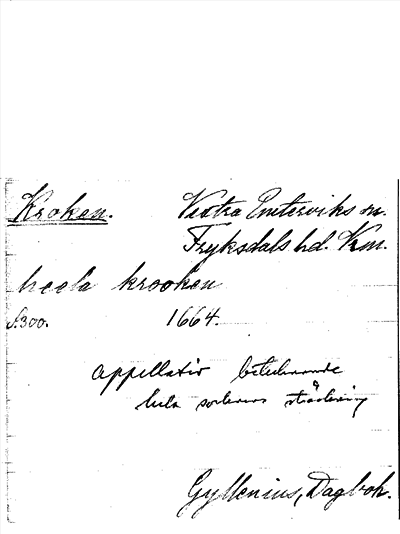 Kroken. Vestra Emterviks sn.
Fryksdals hd. Vrm.
heela krooken
s.300. 1664.
Appellativ betecknande
hela sockens sträckning
Gyllenius, Dagbok.